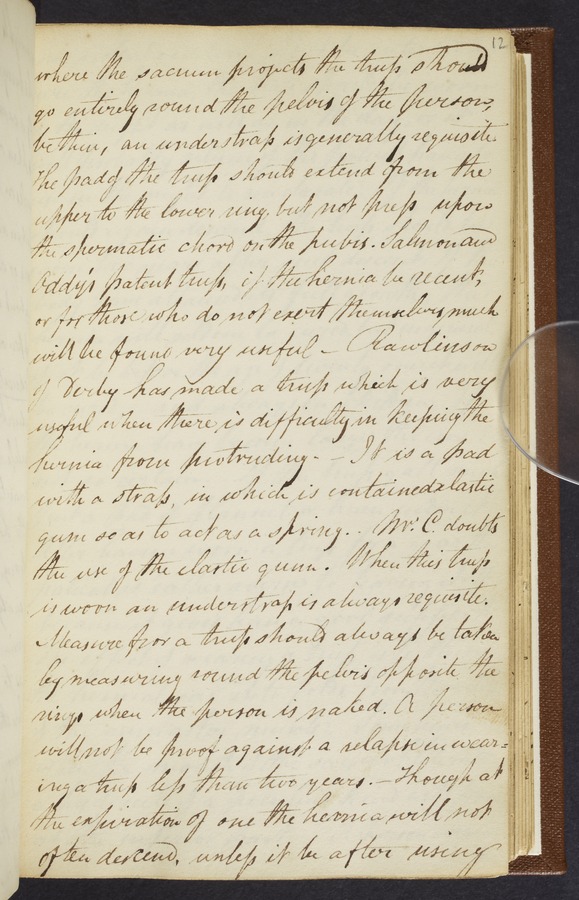 12
where the sacrum projects the truss should
go entirely round the pelvis if the person,
be thin, an understrap is generally requisite.
The pad of the truss should extend from the
upper to the lower ring, but not press upon
the spermatic chord on the pubis. Salmon and
Oddy's patent truss, if the hernia be recent,
or for those who do not exert themselves, much
will be found very useful – Rawlinson
of Derby has made a truss which is very
useful when there is difficulty in keeping the
hernia from protruding. – It is a pad
with a strap, in which is contained elastic
gum so as to act as a spring. . Mr. C. doubts
the use of the elastic gum. When this truss
is worn an understrap is always requisite.
Measure for a truss should always be taken
by measuring round the pelvis opposite the
rings when the person is naked. A person
will not be proof against a relapse in wear=
ing a truss less than two years. – Though at
the expiration of one the hernia will not
often descend, unless it be after using